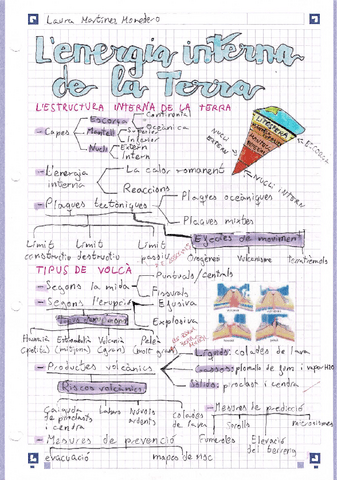 Laura Martínez Monedero
L'energia interna
de la Terra
L'ESTRUCTURA INTERNA DE LA TERRA
- Capes
Escorça
Continental
Oceànica
Mantell
Superior
Inferior
Nucli
Extern
Intern
LITOSFERA
ESCORÇA
NUCLI INTERN
NUCLI EXTERN
- L'energia interna
La calor romanent
Reaccions
- Plaques tectòniques
Plaques oceàniques
Plaques mixtes
Límit constructiu
Límit destructiu
Límit passiu
Efectes de moviment
Orogènes
Volcanisme
terratrèmols
TIPUS DE VOLCÀ
- Segons la mida
Puntuals/centrals
Fissurals
- Segons l'erupció
Efusiva
Explosiva
Hawaià (petita)
Estrombolià (mitjana)
Vulcanià (gran)
Peleà (molt gran)
- Productes volcànics
Líquids: colades de lava
Gasosos: plomalls de gem i vapor H2O
Sòlids: piroclast i cendra
Riscos volcànics
Caiguda de piroclasts i cendra
Lahars
Núvols ardents
colades de lava
- Mesures de predicció
Sorolls
microsismes
Fumeroles
Elevació del terreny
- Mesures de prevenció
evacuació
mapes de risc